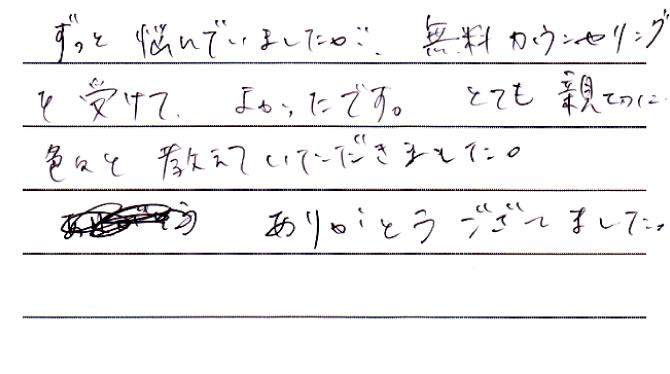 ずっと悩んでいましたが、無料カウンセリング
を受けて、よかったです。とても親切に
色々と教えていただきました。
ありがとうございました。